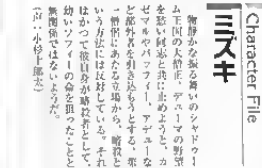 Character File
ミズキ
物静かな振る舞いのシャドウラ
ム王国の大僧正。デューマの野望
を疑い何度と共に止めようと、カ
ゼマルやバッフィー、アデューな
ど部外者を引き込もうとする。赤
一僧正にあたる立場から、略殺と
いう方法には反対している。それ
はかつて彼自身が略殺者として、
幼いソフィーの命を狙ったことと
無関係ではないようだ。
（声・小杉十郎太）